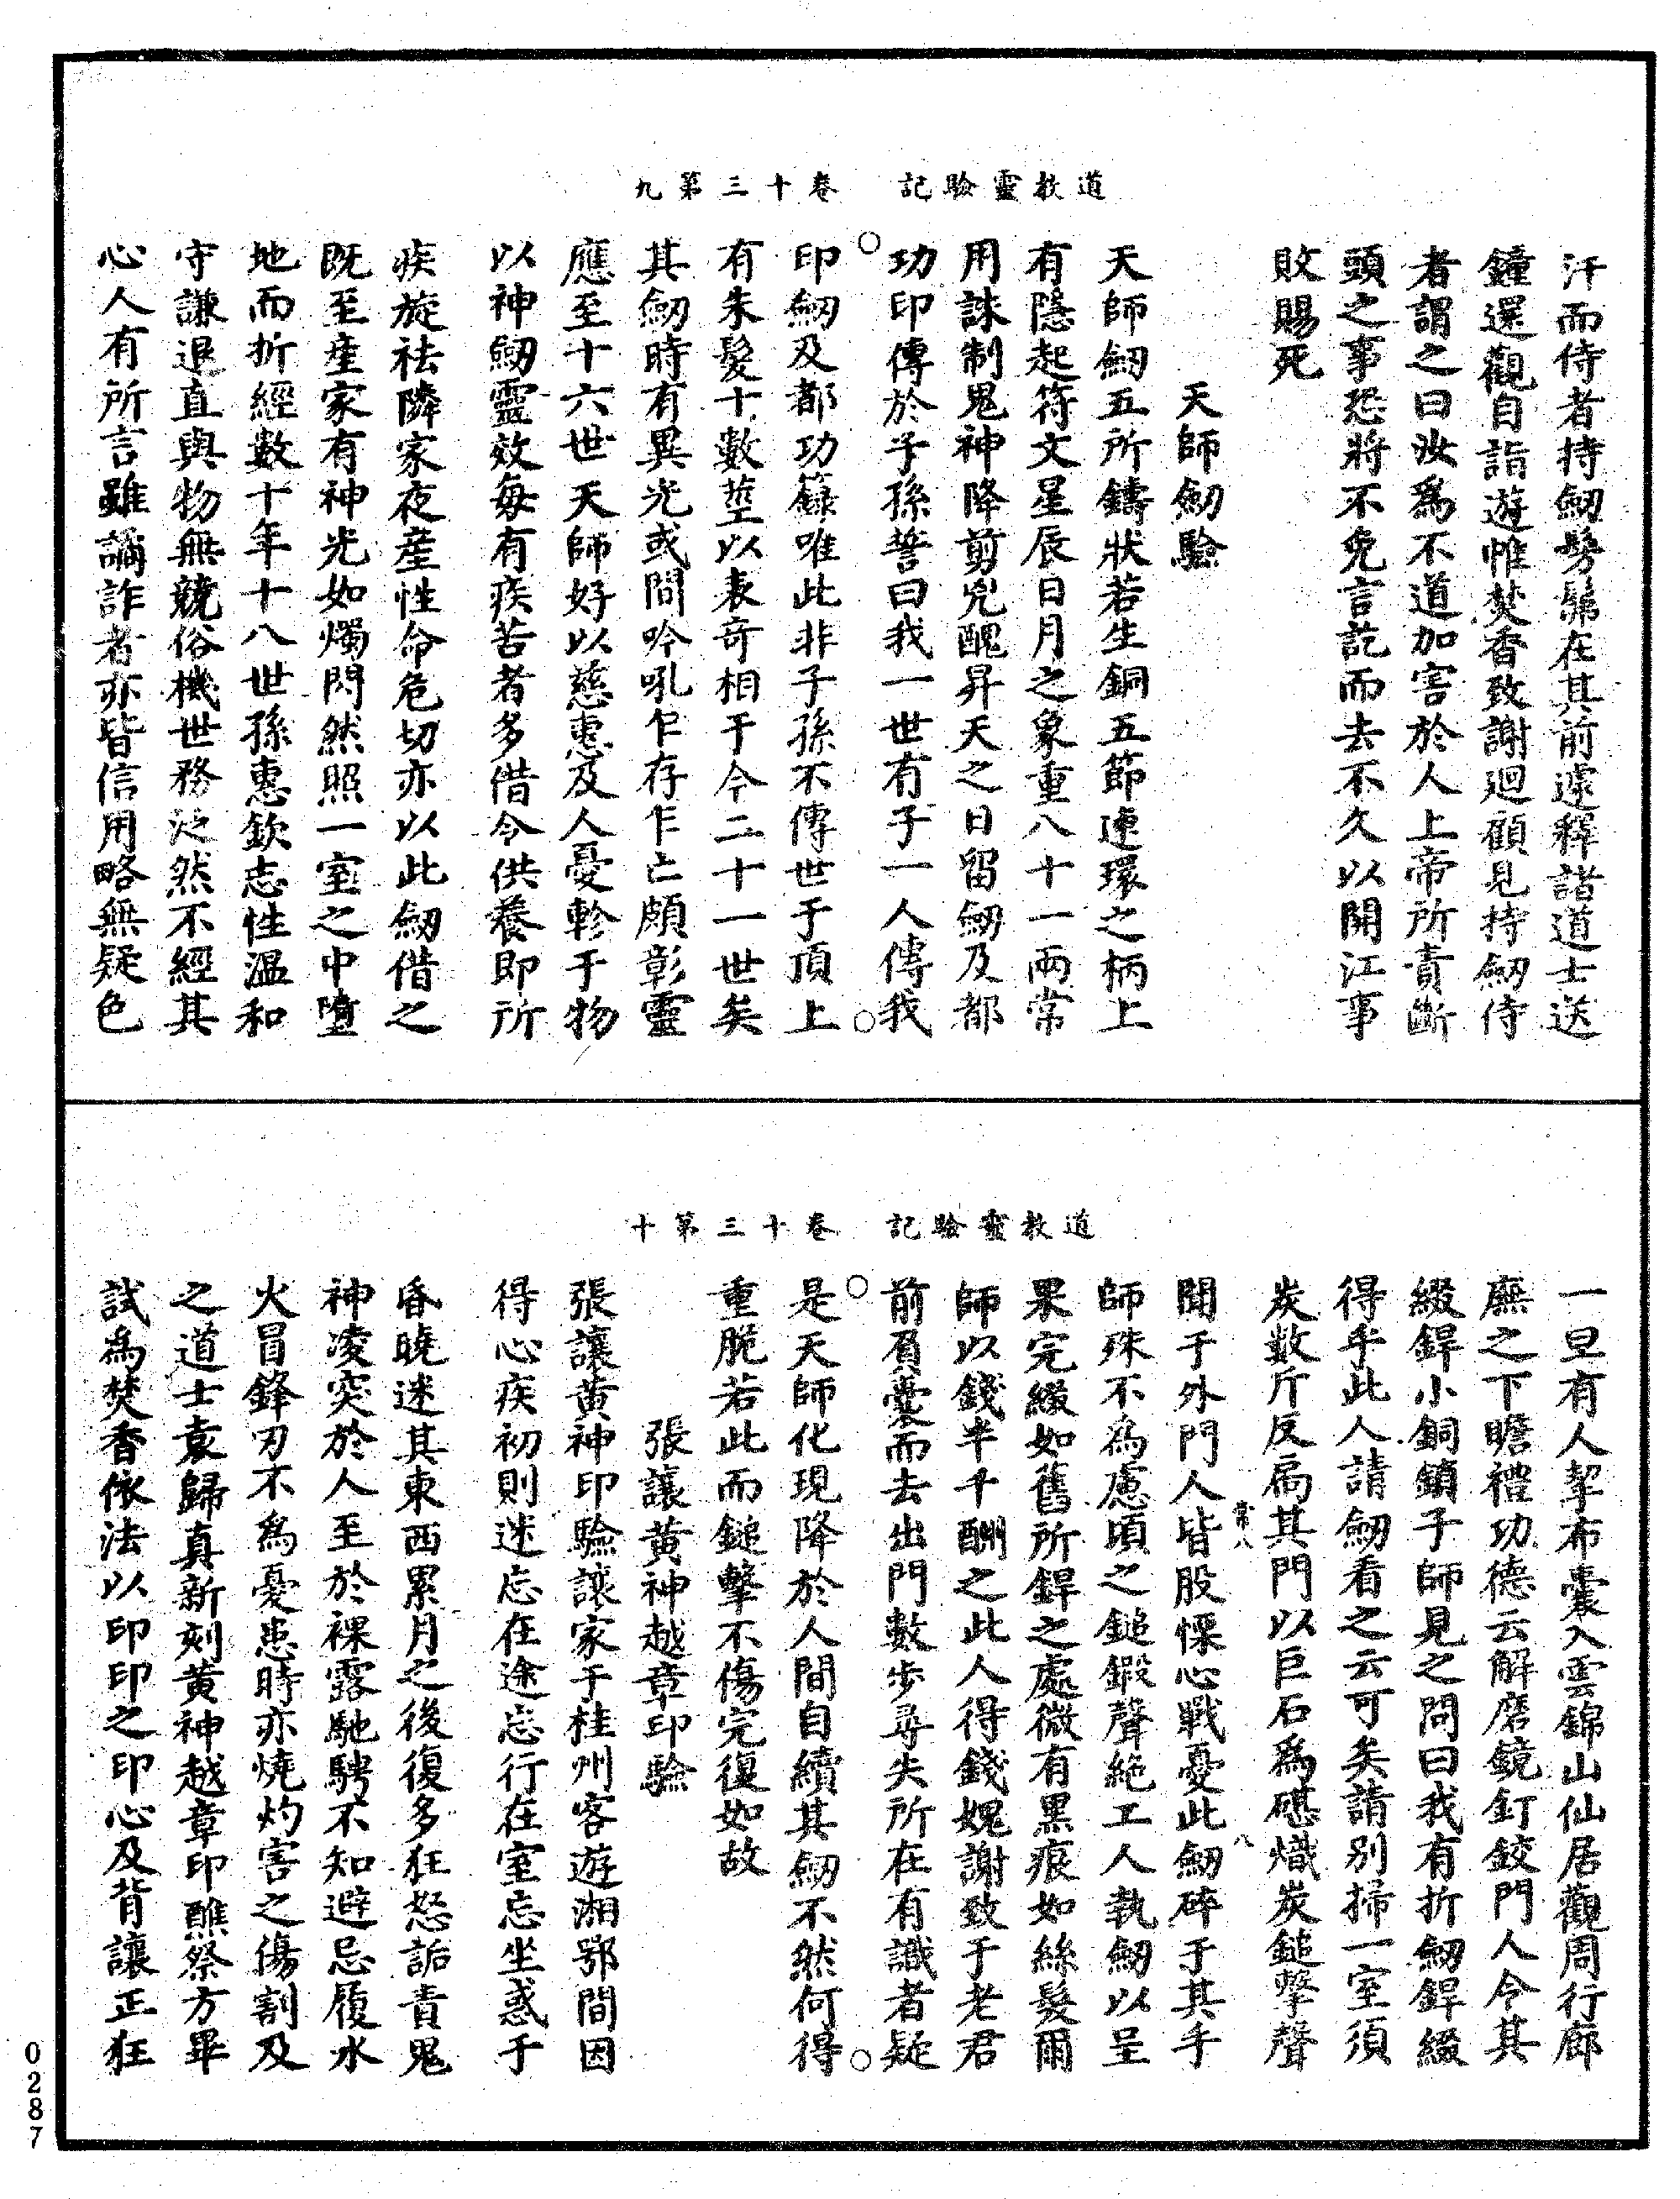 道教靈驗記　卷十三第九
汗而侍者持劒髣髴在其前遽釋諸道士送
鐘還觀自詣遊帷焚香致謝廻顧見持劒侍
者謂之曰汝爲不道加害於人上帝所責斷
頭之事恐將不免言訖而去不久以開江事
敗賜死
天師劒驗
天師劒五所鑄狀若生銅五節連環之柄上
有隱起符文星辰日月之象重八十一兩常
用誅制鬼神降剪兇醜昇天之日留劒及都
功印傳於子孫誓曰我一世有子一人傳我
印劒及都功籙唯此非子孫不傳世于頂上
有朱髮十數莖以表奇相于今二十一世矣
其劒時有異光或聞吟吼乍存乍亡頗彰靈
應至十六世天師好以慈惠及人憂軫于物
以神劒靈效每有疾苦者多借令供養即所
疾旋袪隣家夜産性命危切亦以此劒借之
既至産家有神光如燭閃然照一室之中墮
地而折經數十年十八世孫惠欽志性溫和
守謙退直與物無競俗機世務泛然不經其
心人有所言雖譎詐者亦皆信用略無疑色
道教靈驗記　卷十三第十
一旦有人挈布囊入雲錦山仙居觀周行廊
廡之下瞻禮功德云解磨鏡釘鉸門人令其
綴銲小銅鎖子師見之問曰我有折劒銲綴
得乎此人請劒看之云可矣請别掃一室須
炭數斤反扃其門以巨石爲碪熾炭鎚擊聲
聞于外門人皆股慄心戰憂此劒碎于其手
常八
八
師殊不為慮頃之鎚鍜聲絶工人執劒以呈
果完綴如舊所銲之處微有黒痕如絲髮爾
師以錢半千酬之此人得錢媿謝致于老君
前肩囊而去出門數步尋失所在有識者疑
是天師化現降於人間自續其劒不然何得
重脆若此而鎚擊不傷完復如故
張讓黄神越章印驗
張讓黄神印驗讓家于桂州客遊湘鄂間因
得心疾初則迷忘在途忘行在室忘坐惑于
昏曉迷其東西累月之後復多狂怒詬責鬼
神凌突於人至於裸露馳騁不知避忌履水
火冒鋒刃不爲憂患時亦燒灼害之傷割及
之道士袁歸真新刻黄神越章印醮祭方畢
試爲焚香依法以印印之印心及背讓正狂
0287